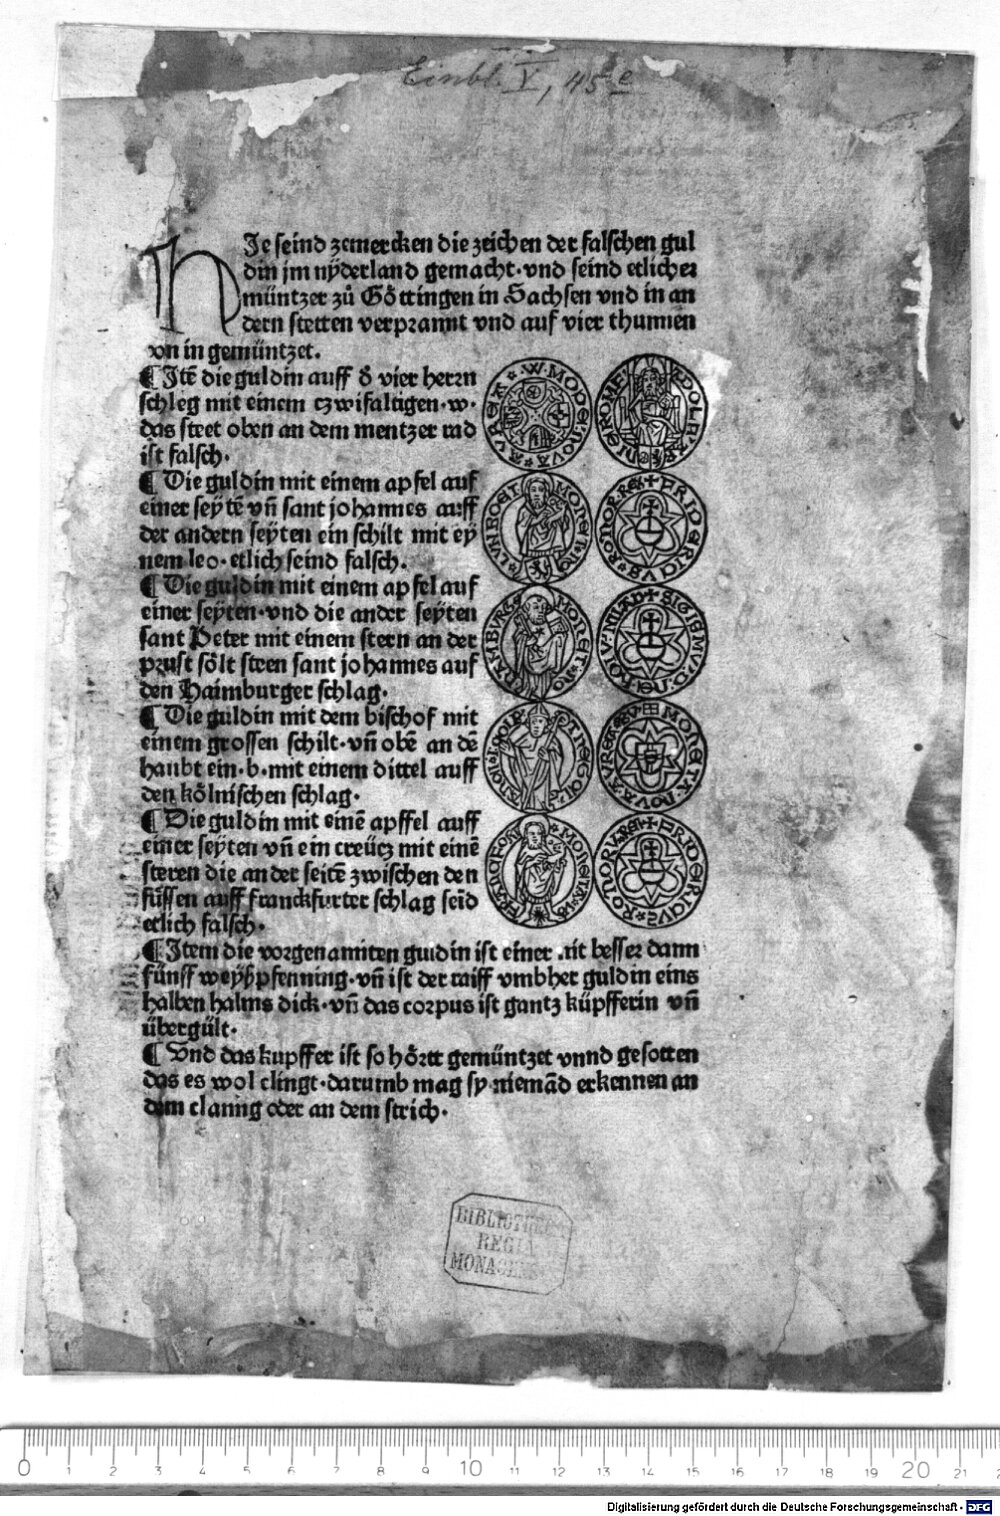 Einbl. V, 45 e
HIe seind zemercken die zeichen der falschen gul
din jm nÿderland gemacht·vnd seind etlicher
müntzer zů Göttingen in Sachsen vnd in an
dern stetten verprannt vnd auf vier thunnen
von in gemüntzet.
¶ Itē die guldin auff ď vier herrn
schleg mit einem czwifaltigen·w·
das steet oben an dem mentzer rad
ist falsch·
¶ Die guldin mit einem apfel auf
einer seÿtē vñ sant johannes auff
der andern seÿten ein schilt mit eÿ
nem leo·etlich seind falsch.
¶ Die guldin mit einem apfel auf
einer seÿten·vnd die ander seÿten
sant Peter mit einem stern an der
prust sölt steen sant johannes auf
den Haimburger schlag·
¶ Die guldin mit dem bischof mit
einem grossen schilt·vñ obē an dē
haubt ein·b·mit einem dittel auff
den kölnischen schlag·
¶ Die guldin mit einē apffel auff
einer seÿten vñ ein creücz mit einē
steren die ander seitē zwischen den
füssen auff franckfurter schlag seīd
etlich falsch·
¶ Item die vorgenannten guldin ist einer nit besser dann
fünff weÿßpfenning·vñ ist der raiff vmbher guldin eins
halben halms dick·vñ das corpus ist gantz küpfferin vñ
übergült·
¶ Vnd das kupffer ist so hörtt gemüntzet vnnd gesotten
das es wol clingt·darumb mag sy niemād erkennen an
dem clanng oder an dem strich·
BIBLIOTHECA
REGIA
MONACENSIS
0 1 2 3 4 5 6 7 8 9 10 11 12 13 14 15 16 17 18 19 20 21
Digitalisierung gefördert durch die Deutsche Forschungsgemeinschaft · DFG